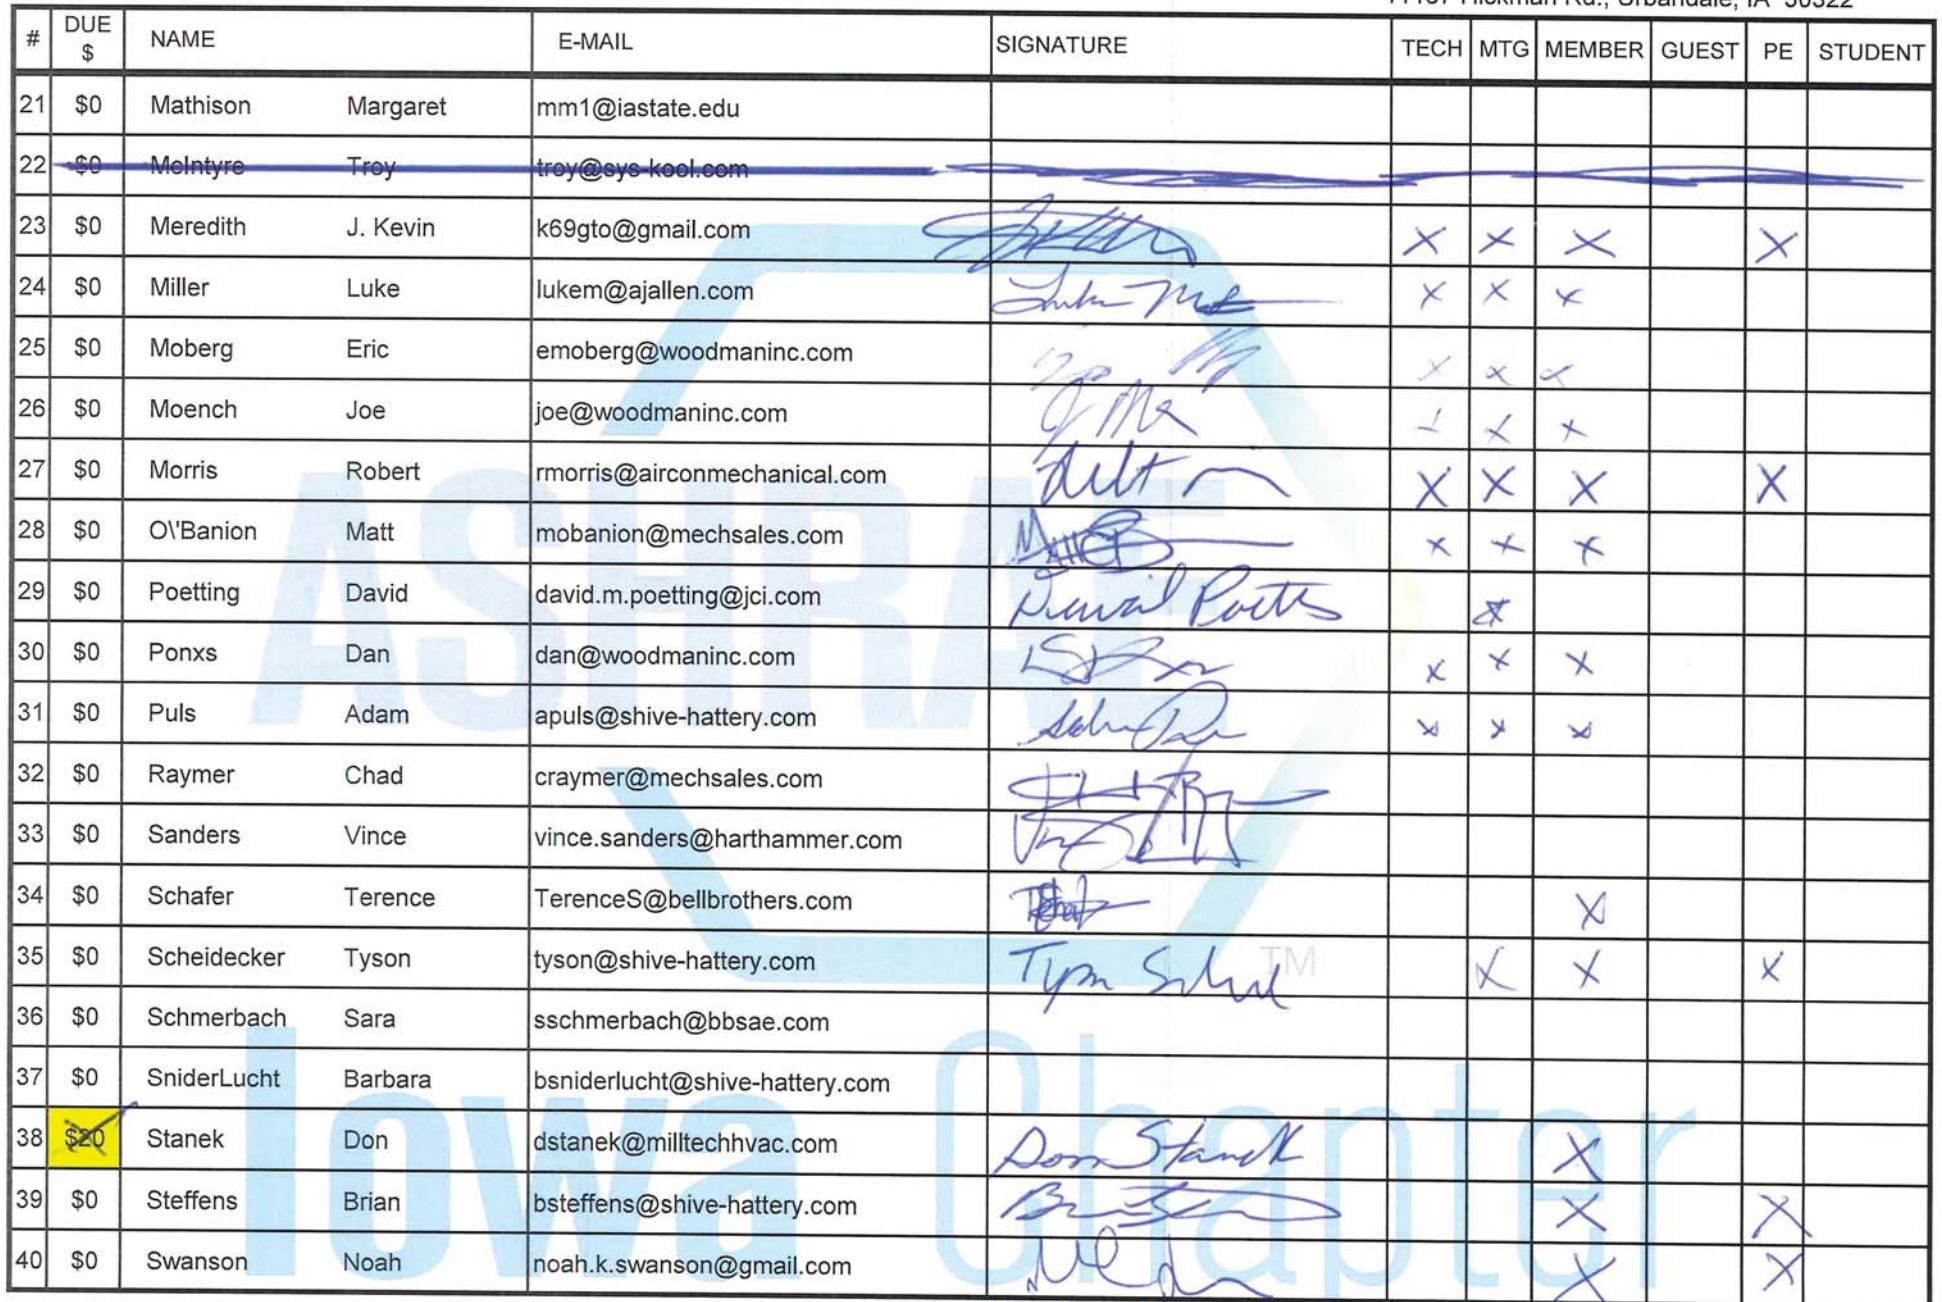 11167 Hickman Rd., Urbandale, IA 50322
# DUE $ NAME E-MAIL SIGNATURE TECH MTG MEMBER GUEST PE STUDENT
21 $0 Mathison Margaret mm1@iastate.edu
22 $0 McIntyre Troy troy@sys-kool.com
23 $0 Meredith J. Kevin k69gto@gmail.com X X X X
24 $0 Miller Luke lukem@ajallen.com Luke X X X
25 $0 Moberg Eric emoberg@woodmaninc.com X X X
26 $0 Moench Joe joe@woodmaninc.com X X X
27 $0 Morris Robert rmorris@airconmechanical.com X X X X
28 $0 O\'Banion Matt mobanion@mechsales.com X X X
29 $0 Poetting David david.m.poetting@jci.com David X
30 $0 Ponxs Dan dan@woodmaninc.com X X X
31 $0 Puls Adam apuls@shive-hattery.com X X X
32 $0 Raymer Chad craymer@mechsales.com
33 $0 Sanders Vince vince.sanders@harthammer.com
34 $0 Schafer Terence TerenceS@bellbrothers.com X
35 $0 Scheidecker Tyson tyson@shive-hattery.com X X X
36 $0 Schmerbach Sara sschmerbach@bbsae.com
37 $0 SniderLucht Barbara bsniderlucht@shive-hattery.com
38 $20 Stanek Don dstanek@milltechhvac.com Don Stanek X
39 $0 Steffens Brian bsteffens@shive-hattery.com X X
40 $0 Swanson Noah noah.k.swanson@gmail.com X X
ASHRAE
TM
Iowa Chapter